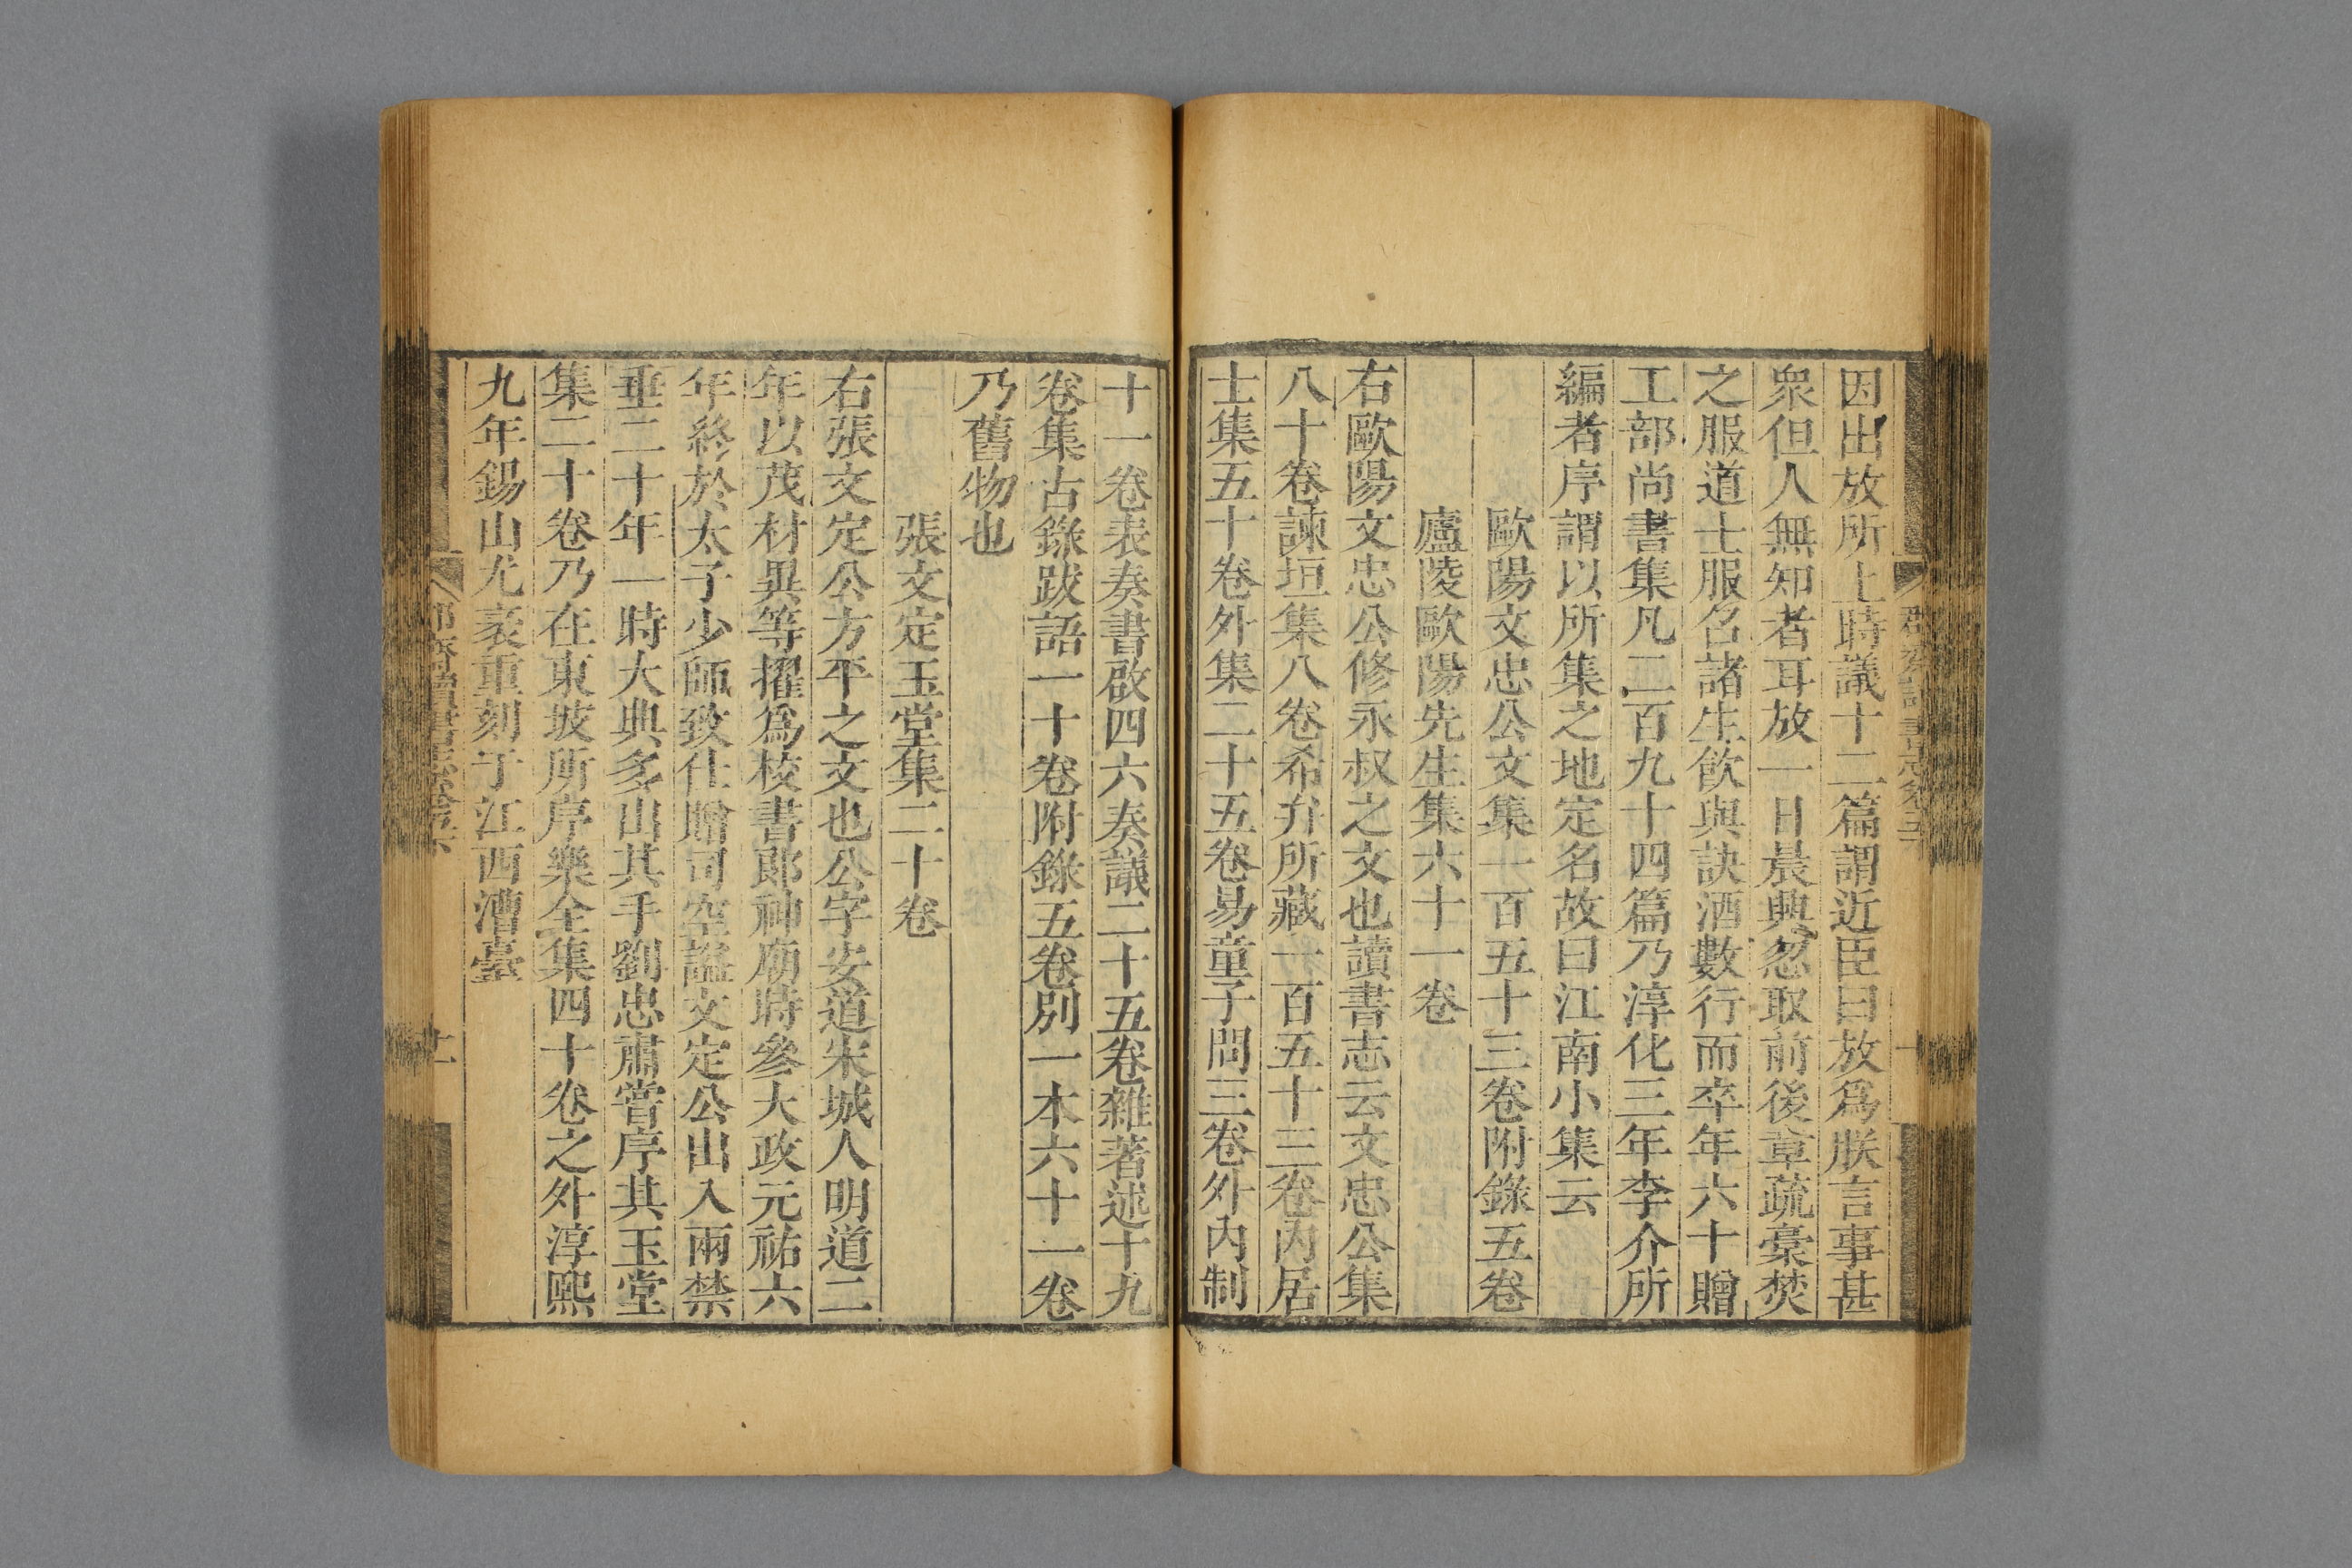 因出放所上時議十二篇謂近臣曰放爲朕言事甚
衆但人無知者耳放一日晨興忽取前後章疏稾焚
之服道士服召諸生飲與訣酒數行而卒年六十贈
工部尚書集凡二百九十四篇乃淳化三年李介所
編者序謂以所集之地定名故曰江南小集云
歐陽文忠公文集一百五十三卷附錄五卷
廬陵歐陽先生集六十一卷
右歐陽文忠公修永叔之文也讀書志云文忠公集
八十卷諫垣集八卷希弁所藏一百五十三卷內居
士集五十卷外集二十五卷易童子問三卷外內制
十一卷表奏書啟四六奏議二十五卷雜著述十九
卷集古錄跋語一十卷附錄五卷別一本六十一卷
乃舊物也
張文定玉堂集二十卷
右張文定公方平之文也公字安道宋城人明道二
年以茂材異等擢爲校書郎神廟時參大政元祐六
年終於太子少師致仕贈司空諡文定公出入兩禁
垂二十年一時大典多出其手劉忠肅嘗序其玉堂
集二十卷乃在東坡所序樂全集四十卷之外淳熙
九年錫山尤袤重刻于江西漕臺